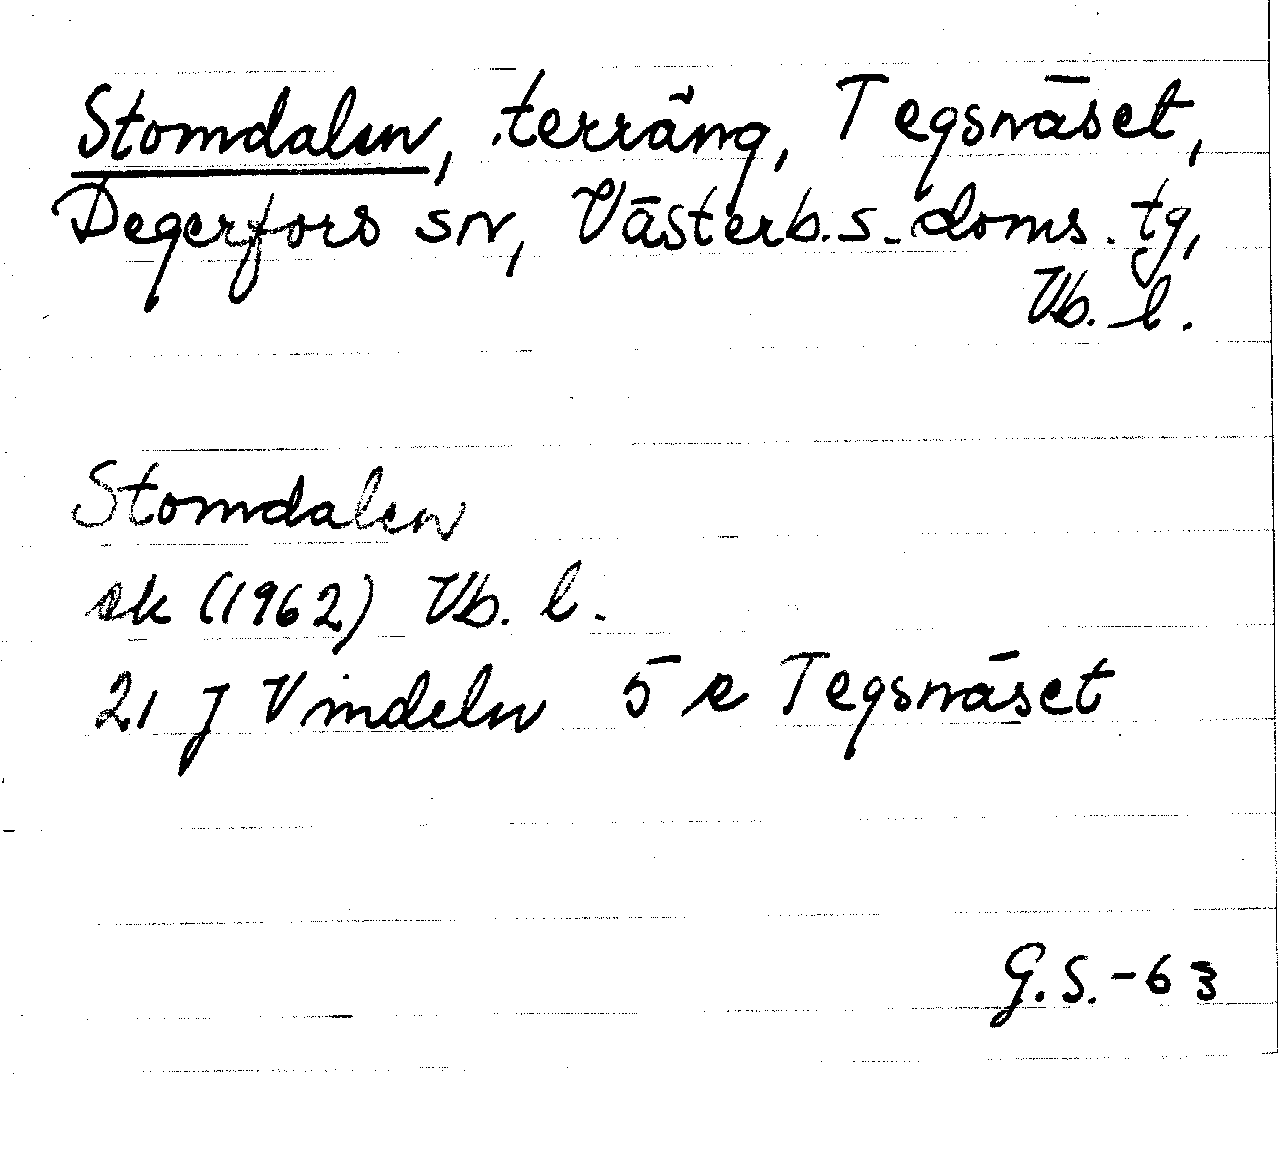 Stomdalen, terräng, Tegsnäset,
Degerfors sn, Västerb. s. doms. tg,
Vb. l.
Stomdalen
ek (1962) Vb. l.
21 J Vindeln 5 e Tegsnäset
G.S.-63